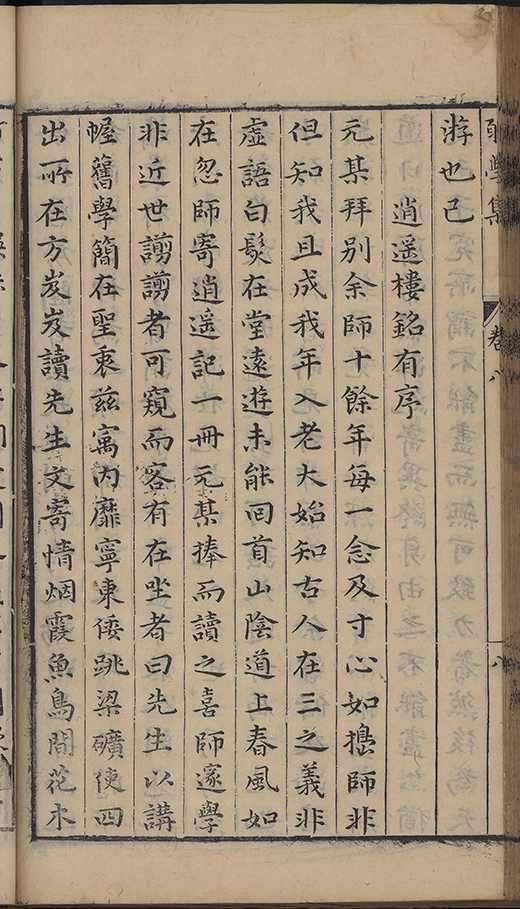 游也已
逍遥樓銘有序
元某拜別余師十餘年每一念及寸心如搗師非
但知我且成我年入老大始知古人在三之義非
虛語白髮在堂遠遊未能回首山陰道上春風如
在忽師寄逍遥記一冊元某捧而讀之喜師邃學
非近世謭謭者可窺而客有在坐者曰先生以講
幄舊學簡在聖衷兹寓内靡寧東倭跳梁礦使四
出所在方岌岌讀先生文寄情烟霞魚鳥間花木
學集
卷八
八